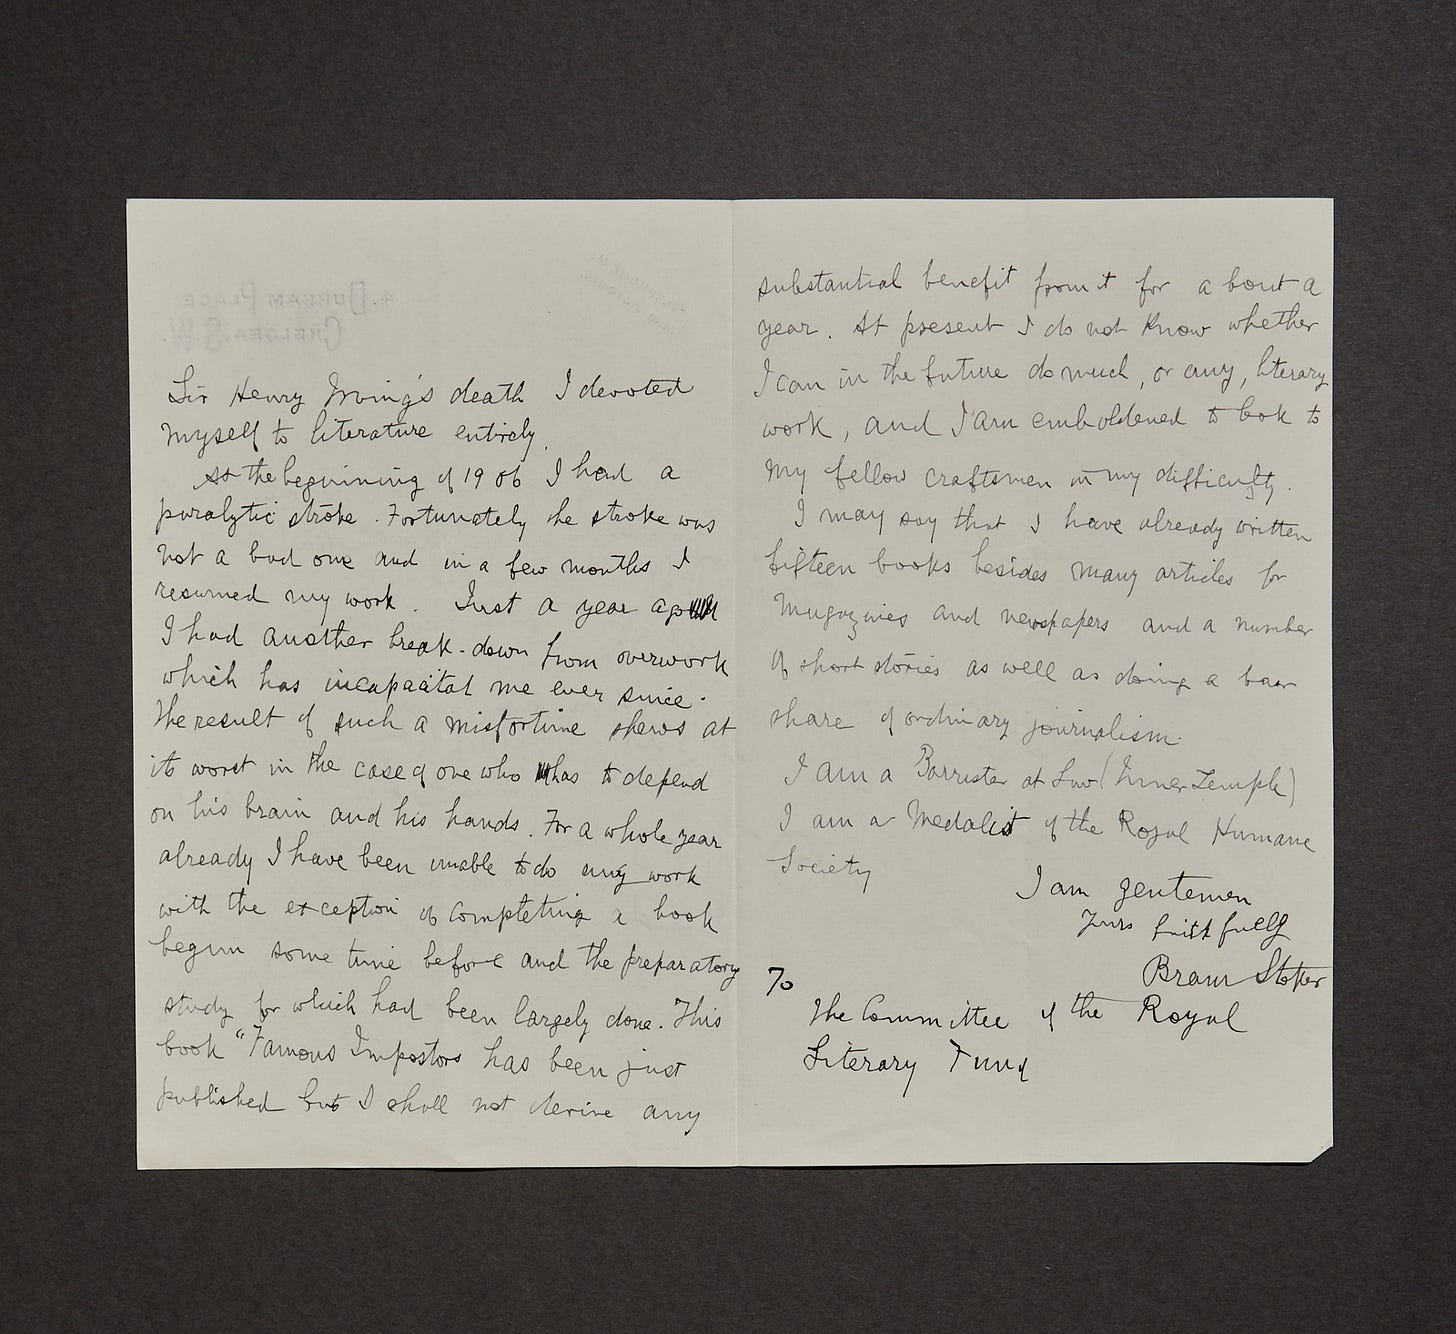 4. DURHAM PLACE
CHELSEA. S.W.
Sir Henry Irving's death I devoted
myself to literature entirely.
At the beginning of 1906 I had a
paralytic stroke. Fortunately the stroke was
not a bad one and in a few months I
resumed my work. Just a year ago
I had another break-down from overwork
which has incapacitated me ever since.
The result of such a misfortune shews at
its worst in the case of one who has to depend
on his brain and his hands. For a whole year
already I have been unable to do any work
with the exception of completing a book
begun some time before and the preparatory
study for which had been largely done. This
book "Famous Impostors has been just
published but I shall not derive any
substantial benefit from it for about a
year. At present I do not know whether
I can in the future do much, or any, literary
work, and I am emboldened to look to
my fellow craftsmen in my difficulty.
I may say that I have already written
fifteen books besides many articles for
magazines and newspapers and a number
of short stories as well as doing a
share of ordinary journalism.
I am a Barrister at Law (Inner Temple)
I am a Medalist of the Royal Humane
Society
I am gentlemen
Yours faithfully
Bram Stoker
To
The Committee of the Royal
Literary Fund